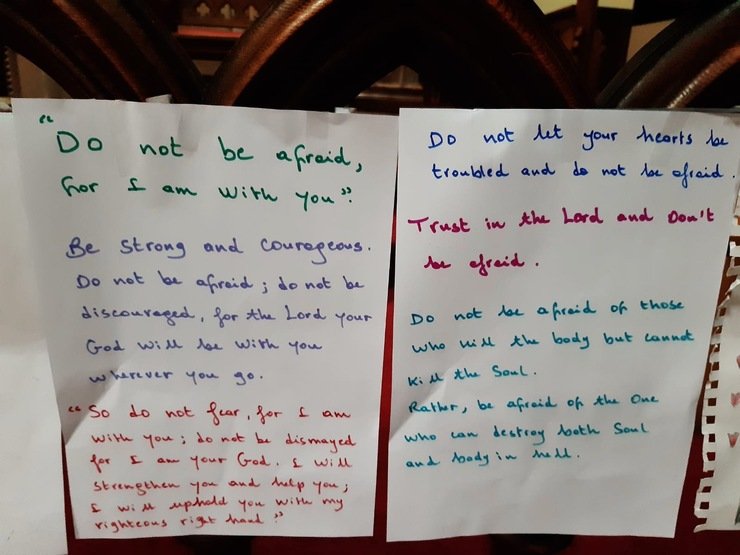 “Do not be afraid,
for I am with you”.
Be strong and courageous.
Do not be afraid; do not be
discouraged, for the Lord your
God will be with you
wherever you go.
“So do not fear, for I am
with you; do not be dismayed
for I am your God. I will
strengthen you and help you;
I will uphold you with my
righteous right hand”
Do not let your hearts be
troubled and do not be afraid.
Trust in the Lord and Don't
be afraid.
Do not be afraid of those
who kill the body but cannot
kill the Soul.
Rather, be afraid of the One
who can destroy both Soul
and body in hell.